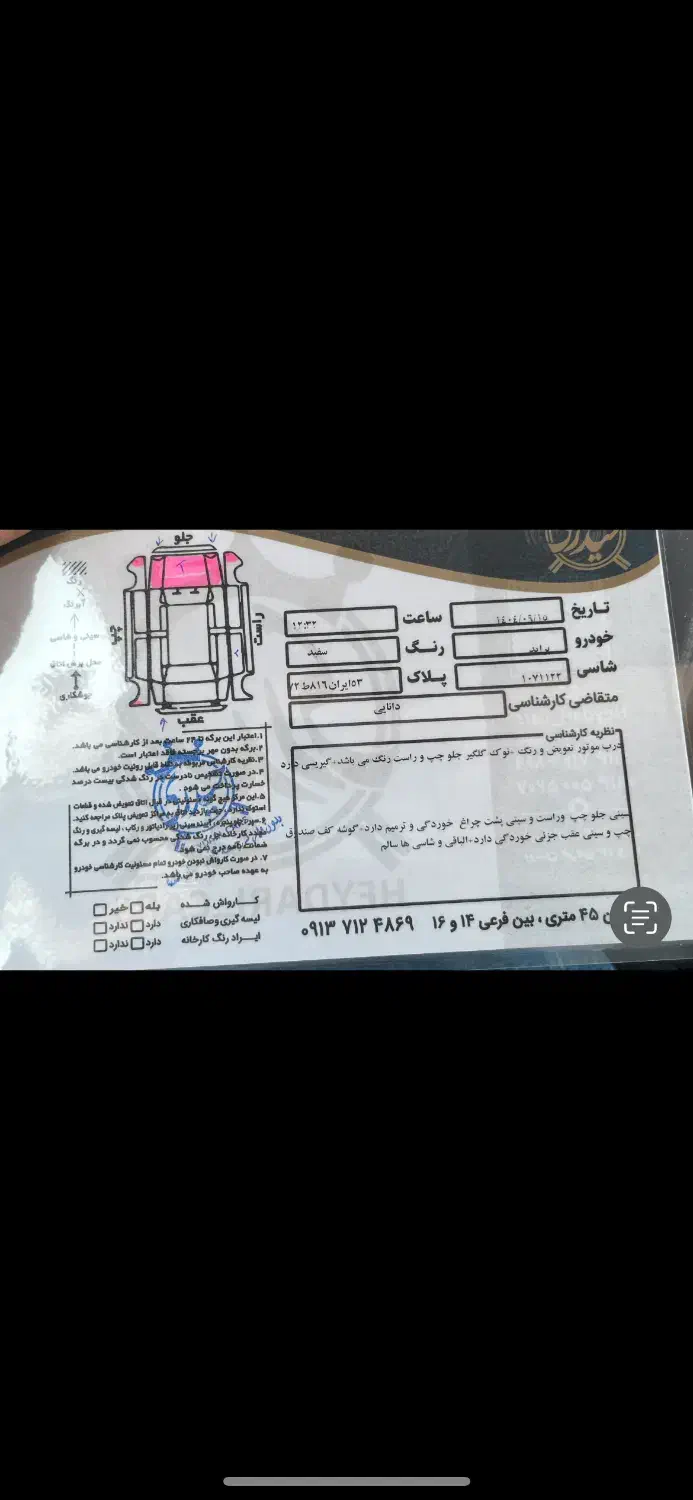 حیدری
تاریخ ۱۴۰۴/۰۶/۱۵ ساعت ۱۲:۳۲
خودرو پراید رنگ سفید
شاسی ۱۰۷۱۱۲۳ پلاک
متقاضی کارشناسی دانایی
نظریه کارشناسی
درب موتور تعویض و رنگ -نوک گلگیر جلو چپ و راست رنگ می باشد- گیریسی دارد
سینی جلو چپ وراست و سینی پشت چراغ خوردگی و ترمیم دارد-گوشه کف صندوق
چپ و سینی عقب جزئی خوردگی دارد-اتاقی و شاسی ها سالم
۴۵ متری ، بین فرعی ۱۴ و ۱۶ ۰۹۱۳ ۷۱۲ ۴۸۶۹
جلو
راست
چپ
عقب
رنگ
آبرنگ
سینی و شاسی
جوشکاری
۱.اعتبار این برگه تا ۲۴ ساعت بعد از کارشناسی می باشد.
۲.برگه بدون مهر برجسته فاقد اعتبار است.
۳.نظریه کارشناسی مربوطه بر جلو قابل رویت خودرو می باشد.
۴.در صورت تشخیص نادرست در رنگ شدگی بیست درصد
خسارت پرداخت می شود.
۵.این مرکز هیچ گونه مسئولیتی در قبال اتاق تعویض شده و قطعات
استوک ندارد، جهت بازدید اتاق به مراکز تعویض پلاک مراجعه کنید.
رادیاتور و رکاب ، لیسه گیری و رنگ
رنگ شدگی محسوب نمی گردد و در برگه
ضمانت نامه درج نمی شود.
۷. در صورت کارواش نبودن خودرو تمام مسئولیت کارشناسی خودرو
به عهده صاحب خودرو می باشد.
کارواش شده بله خیر
لیسه گیری وصافکاری دارد ندارد
ایراد رنگ کارخانه دارد ندارد
HEYDARI